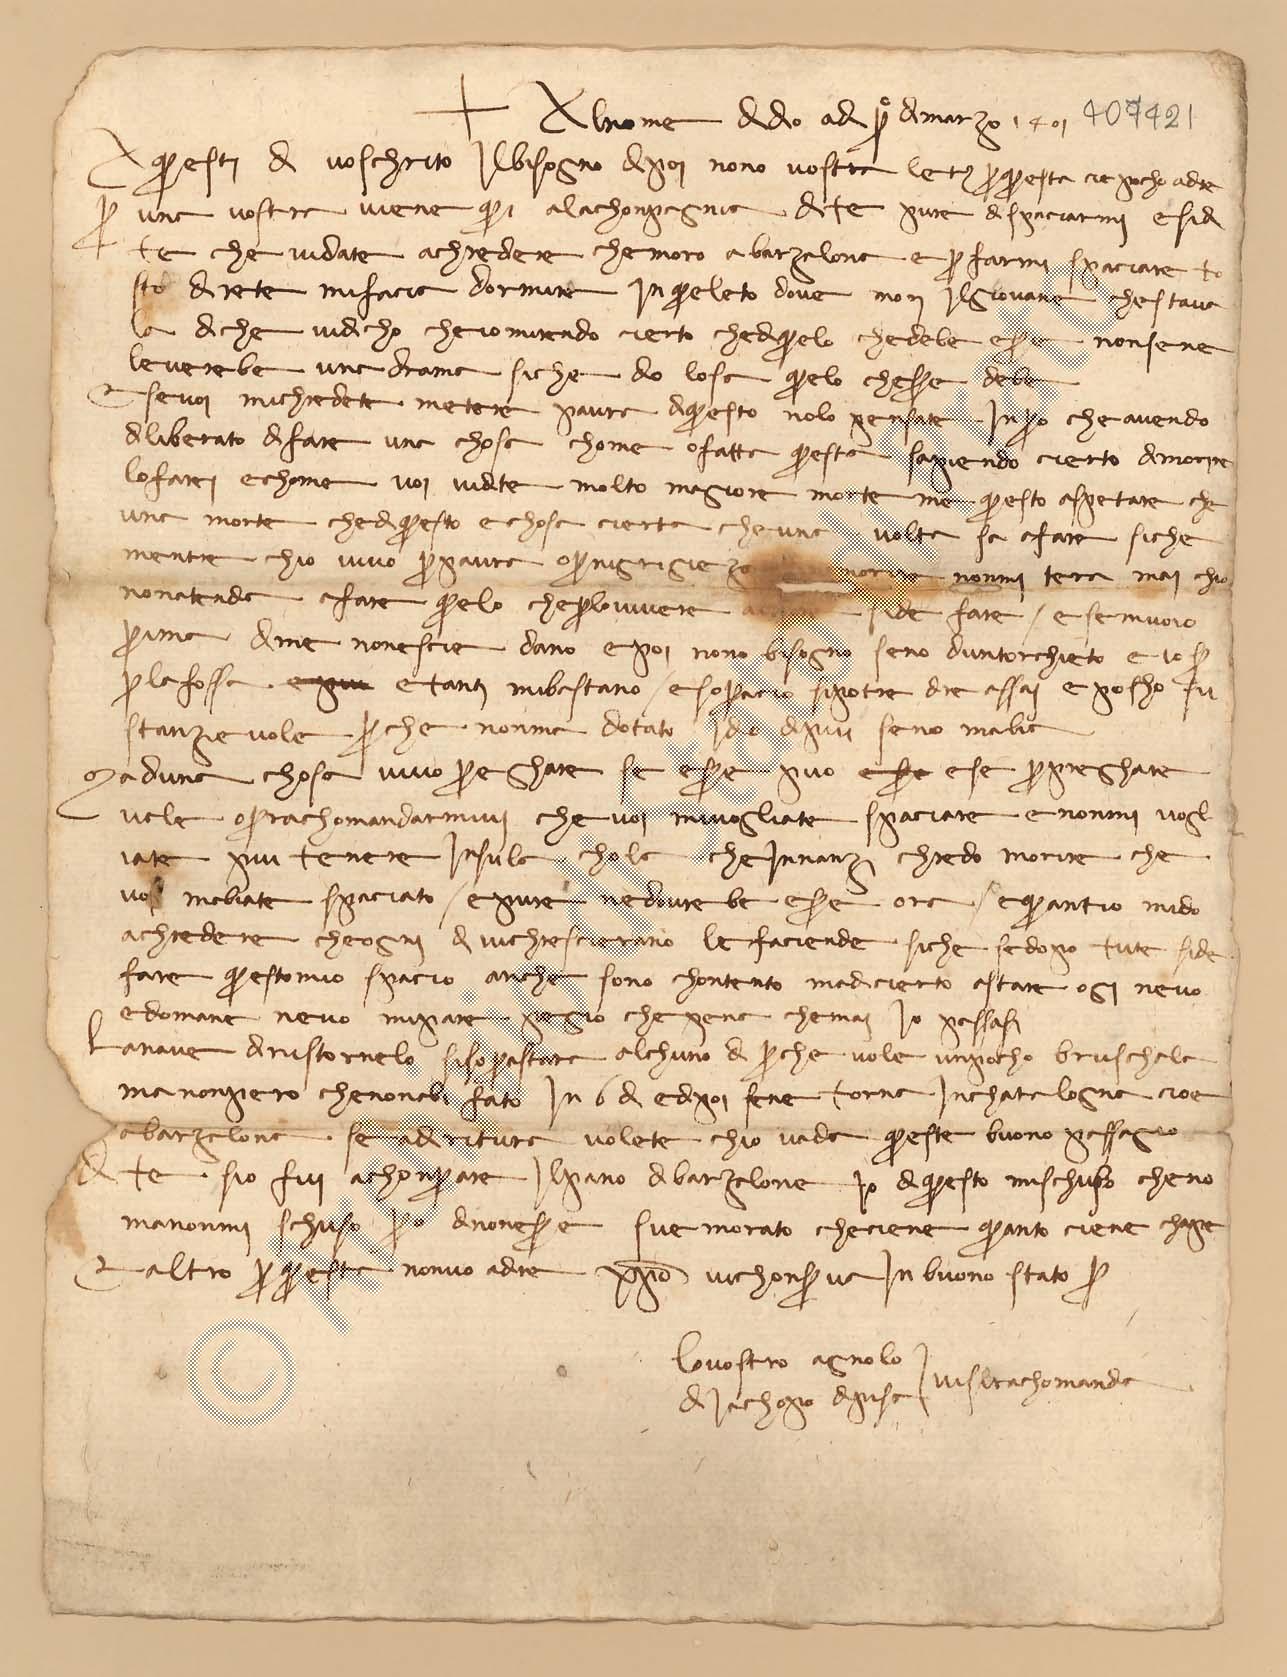 + Al nome di dio adi pº di marzo 1401 407421
A questi di vo schrito il bisogno di poi nono vostra letª p questa cie pocho a dire
p una vostra viene qui a la chonpagnia dite pure dispaciarmi e si di
te che vi date a chredere che moro a barzalona e p farmi spaciare to
sto direte mi facia dormire in queleto dove mori il giovane che stava
la di che vi dicho che io mi rendo cierto che di quelo che debe esere non sene
leverebe una drama siche dio lo sa quelo che esere debe
E se voi mi chredete metere paura di questo nolo pensate in po che avendo
diliberato di fare una chosa chome o fatta questa sapiendo cierto di morire
lo farei e chome voi vi dite molto magiore morte me questo aspetare che
una morte che di questo e chosa cierta che una volta sa a fare siche
mentre chio vivo p paura o p nigrigienza morire nonmi tera mai chio
non atenda a fare quelo che p lo vivere si de fare / e se muoio
prima di me non escie dano e poi nono bisogno seno duntorchieto e io s
p la fossa e piu e tanti mi bastano / e sopra cio si potre dire assai e posso su
stanzievole p che nonma dotato idio di piu seno mabia
Ma duna chosa vivo p eghare se esere puo esere e se p preghare
vale o p rachomandarmivi che voi mi vogliate spaciare e nonmi vogl
iate piu tenere in su la chola che innanzi chredo morire che
voi mabiate spaciato / e pure ne dovrebe esere ora / e quantio mi do
a chredere che ogni di vi chrescierano le faciende siche se dopo tute si de
fare questo mio spacio anche sono chontento ma di cierto a stare ogi ne vo
e domane ne vo mi pare pegio che pena che mai io passasi
La nave di ristornelo si sopastara alchuno di p che vole unpocho bruschala
ma nonpero che nonabi fato in 6 di e dipoi sene torna in chatalogna cioe
a barzalona se adiritura volete chio vada queste buono passagio
dite sio fui a chonprare il pano di barzalona io di questo mi schuso che no
ma nonmi schuso p o di non esere sue morato che ciene quanto ciene chape
E altro p questa non vo a dire xpo vi chonserva in buono stato p
lo vostro agnolo
di iachopo di pisa vi si rachomanda
© Archivio di Stato di Prato